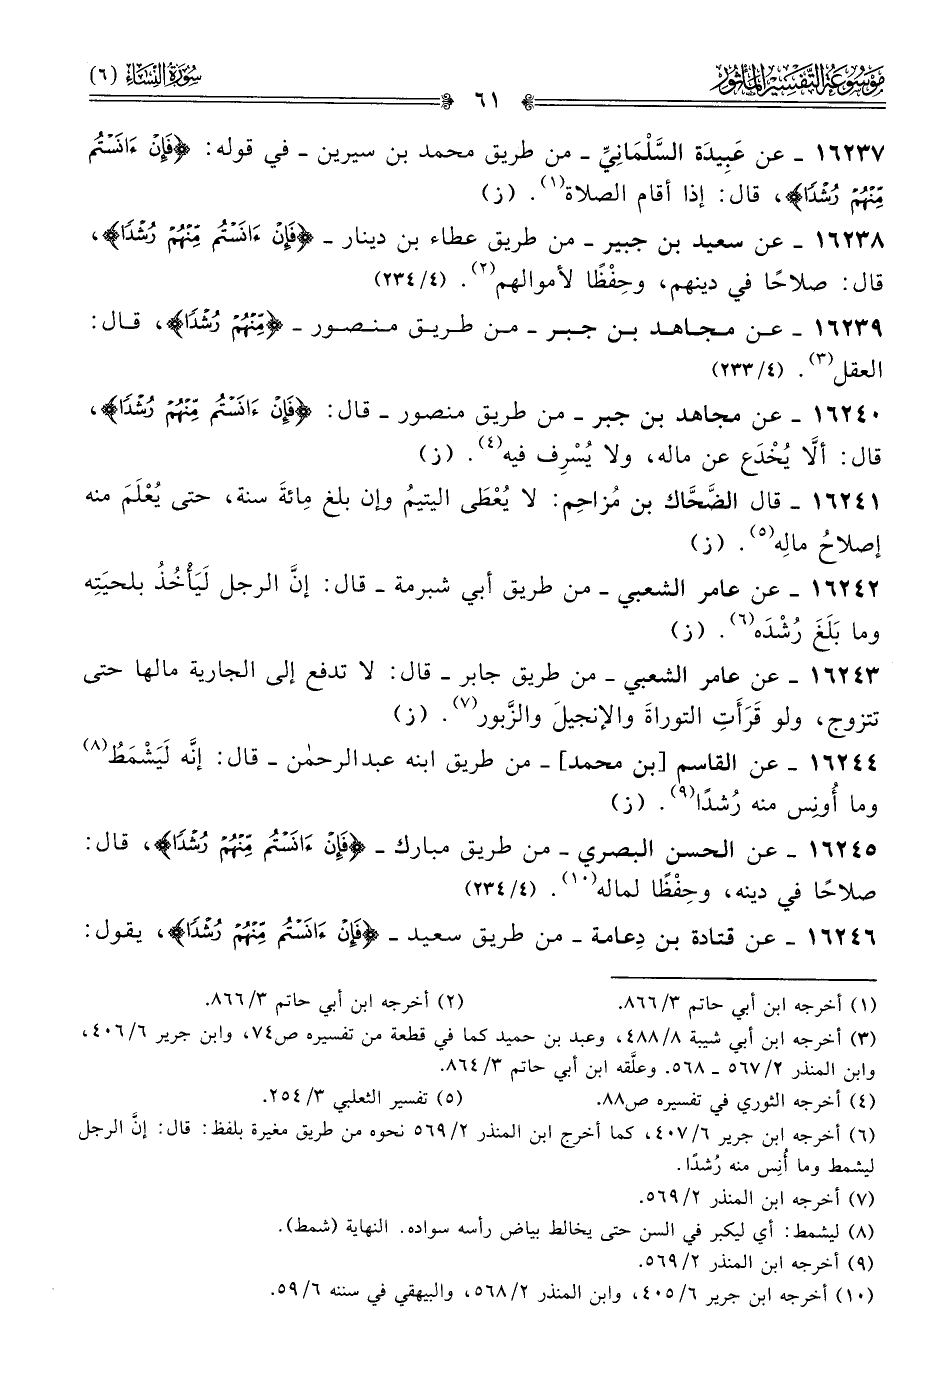 موسوعة التفسير المأثور
سورة النساء (٦)
٦١
١٦٢٣٧ ـ عن عَبِيدَة السَّلْمَانِيِّ ـ من طريق محمد بن سيرين ـ في قوله: ﴿فَإِنْ ءَانَسْتُم
مِّنْهُمْ رُشْدًا﴾، قال: إذا أقام الصلاة(١). (ز)
١٦٢٣٨ ـ عن سعيد بن جبير ـ من طريق عطاء بن دينار ـ ﴿فَإِنْ ءَانَسْتُم مِّنْهُمْ رُشْدًا﴾،
قال: صلاحًا في دينهم، وحِفْظًا لأموالهم(٢). (٢٣٤/٤)
١٦٢٣٩ ـ عن مجاهد بن جبر ـ من طريق منصور ـ ﴿مِّنْهُمْ رُشْدًا﴾، قال:
العقل(٣). (٢٣٣/٤)
١٦٢٤٠ ـ عن مجاهد بن جبر ـ من طريق منصور ـ قال: ﴿فَإِنْ ءَانَسْتُم مِّنْهُمْ رُشْدًا﴾،
قال: ألَّا يُخْدَع عن ماله، ولا يُسْرِف فيه(٤). (ز)
١٦٢٤١ ـ قال الضَّحَّاك بن مُزاحِم: لا يُعْطَى اليتيمُ وإن بلغ مِائةَ سنة، حتى يُعْلَمَ منه
إصلاحُ مالِه(٥). (ز)
١٦٢٤٢ ـ عن عامر الشعبي ـ من طريق أبي شبرمة ـ قال: إنَّ الرجل لَيَأْخُذُ بلحيَتِه
وما بَلَغَ رُشْدَه(٦). (ز)
١٦٢٤٣ ـ عن عامر الشعبي ـ من طريق جابر ـ قال: لا تدفع إلى الجارية مالها حتى
تتزوج، ولو قَرَأَتِ التوراةَ والإنجيلَ والزَّبور(٧). (ز)
١٦٢٤٤ ـ عن القاسم [بن محمد] ـ من طريق ابنه عبدالرحمٰن ـ قال: إنَّه لَيَشْمَطُ(٨)
وما أُونِس منه رُشدًا(٩). (ز)
١٦٢٤٥ ـ عن الحسن البصري ـ من طريق مبارك ـ ﴿فَإِنْ ءَانَسْتُم مِّنْهُمْ رُشْدًا﴾، قال:
صلاحًا في دينه، وحِفْظًا لماله(١٠). (٢٣٤/٤)
١٦٢٤٦ ـ عن قتادة بن دِعامة ـ من طريق سعيد ـ ﴿فَإِنْ ءَانَسْتُم مِّنْهُمْ رُشْدًا﴾، يقول:
(١) أخرجه ابن أبي حاتم ٨٦٦/٣. (٢) أخرجه ابن أبي حاتم ٨٦٦/٣.
(٣) أخرجه ابن أبي شيبة ٤٨٨/٨، وعبد بن حميد كما في قطعة من تفسيره ص٧٤، وابن جرير ٤٠٦/٦،
وابن المنذر ٥٦٧/٢ ـ ٥٦٨. وعلَّقه ابن أبي حاتم ٨٦٤/٣.
(٤) أخرجه الثوري في تفسيره ص٨٨. (٥) تفسير الثعلبي ٢٥٤/٣.
(٦) أخرجه ابن جرير ٤٠٧/٦، كما أخرج ابن المنذر ٥٦٩/٢ نحوه من طريق مغيرة بلفظ: قال: إنَّ الرجل
ليشمط وما أُنِس منه رُشدًا.
(٧) أخرجه ابن المنذر ٥٦٩/٢.
(٨) ليشمط: أي ليكبر في السن حتى يخالط بياض رأسه سواده. النهاية (شمط).
(٩) أخرجه ابن المنذر ٥٦٩/٢.
(١٠) أخرجه ابن جرير ٤٠٥/٦، وابن المنذر ٥٦٨/٢، والبيهقي في سننه ٥٩/٦.